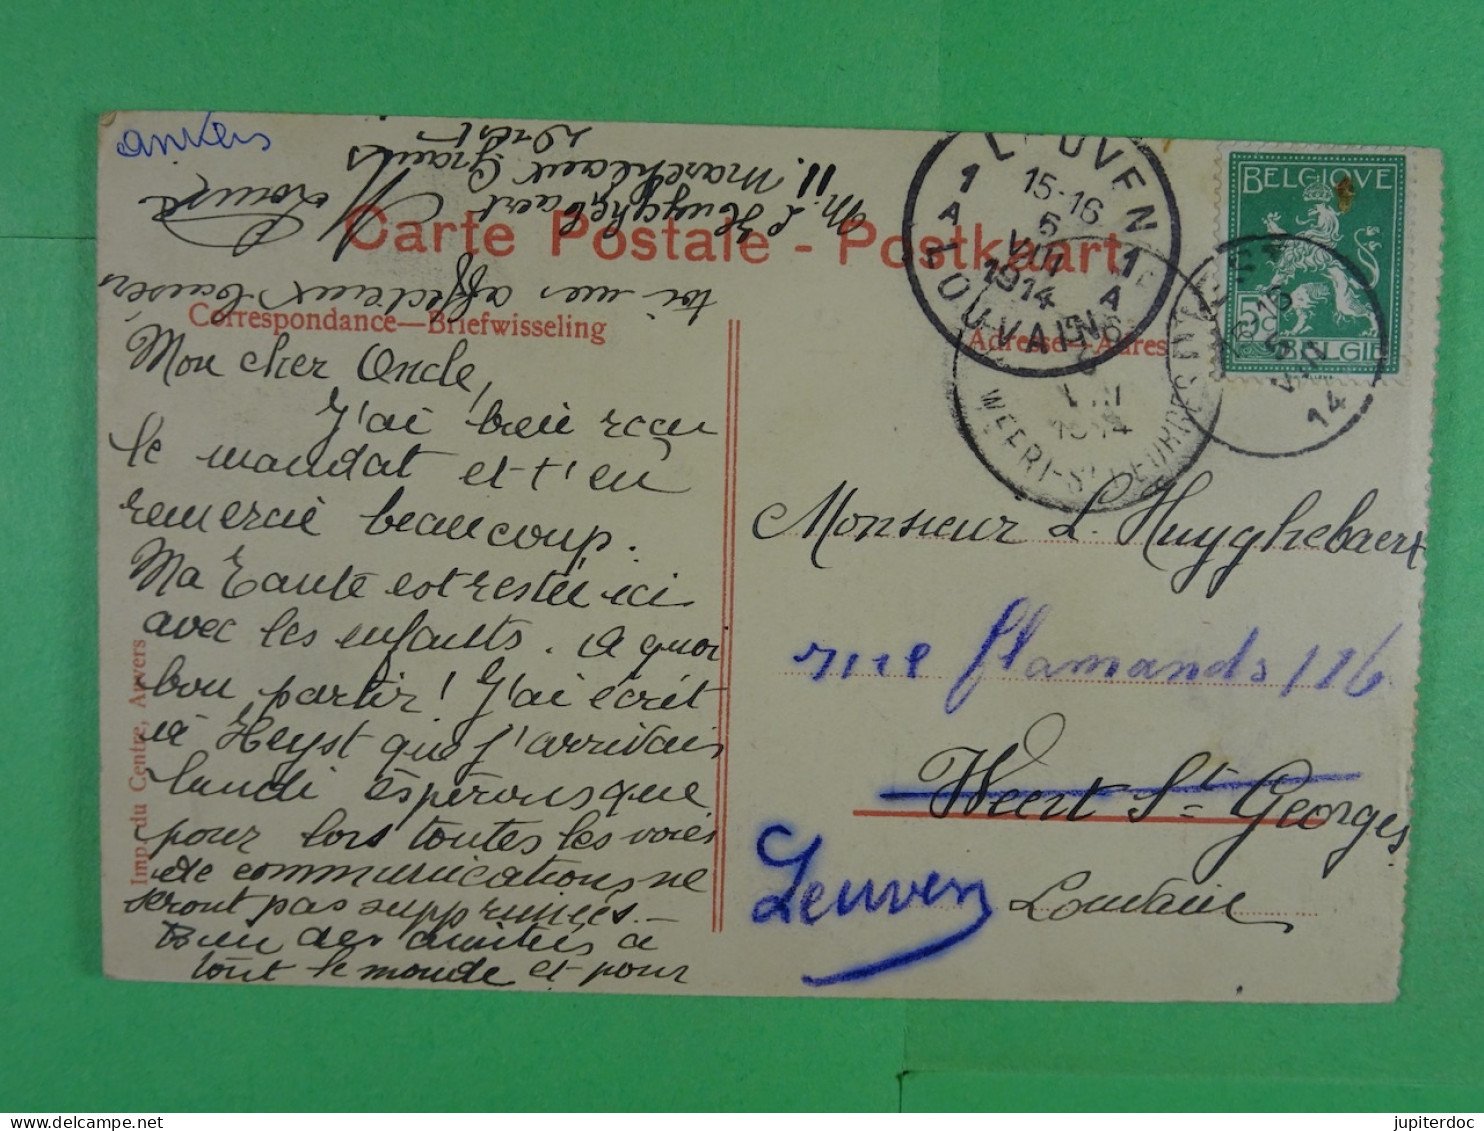 anvers
Carte Postale - Postkaart
Correspondance—Briefwisseling
Adresse—Adres
Mon cher Oncle,
J'ai bien reçu
le mandat et t'en
remercie beaucoup.
Ma Tante est restée ici
avec les enfants. A quoi
bon partir! J'ai écrit
à Heyst que j'arrivais
lundi espérons que
pour lors toutes les voies
de communications ne
seront pas supprimées.
Bien des amitiés à
tout le monde et pour
toi mes affectueux baisers
Louise
M. L. Huyghebaert
11. Marchlaux Grains
Imp. du Centre, Anvers
LEUVEN
1 A
15-16
5
VIII
1914
1 A
LOUVAIN
WEERT-ST-GEORGES
VIII
1914
15-16
5
VIII
14
BELGIQUE
5c
BELGIË
Monsieur L. Huyghebaert
rue flamands 116
Weert St Georges
Leuven
Louvain
https://www.delcampe.net
jupiterdoc